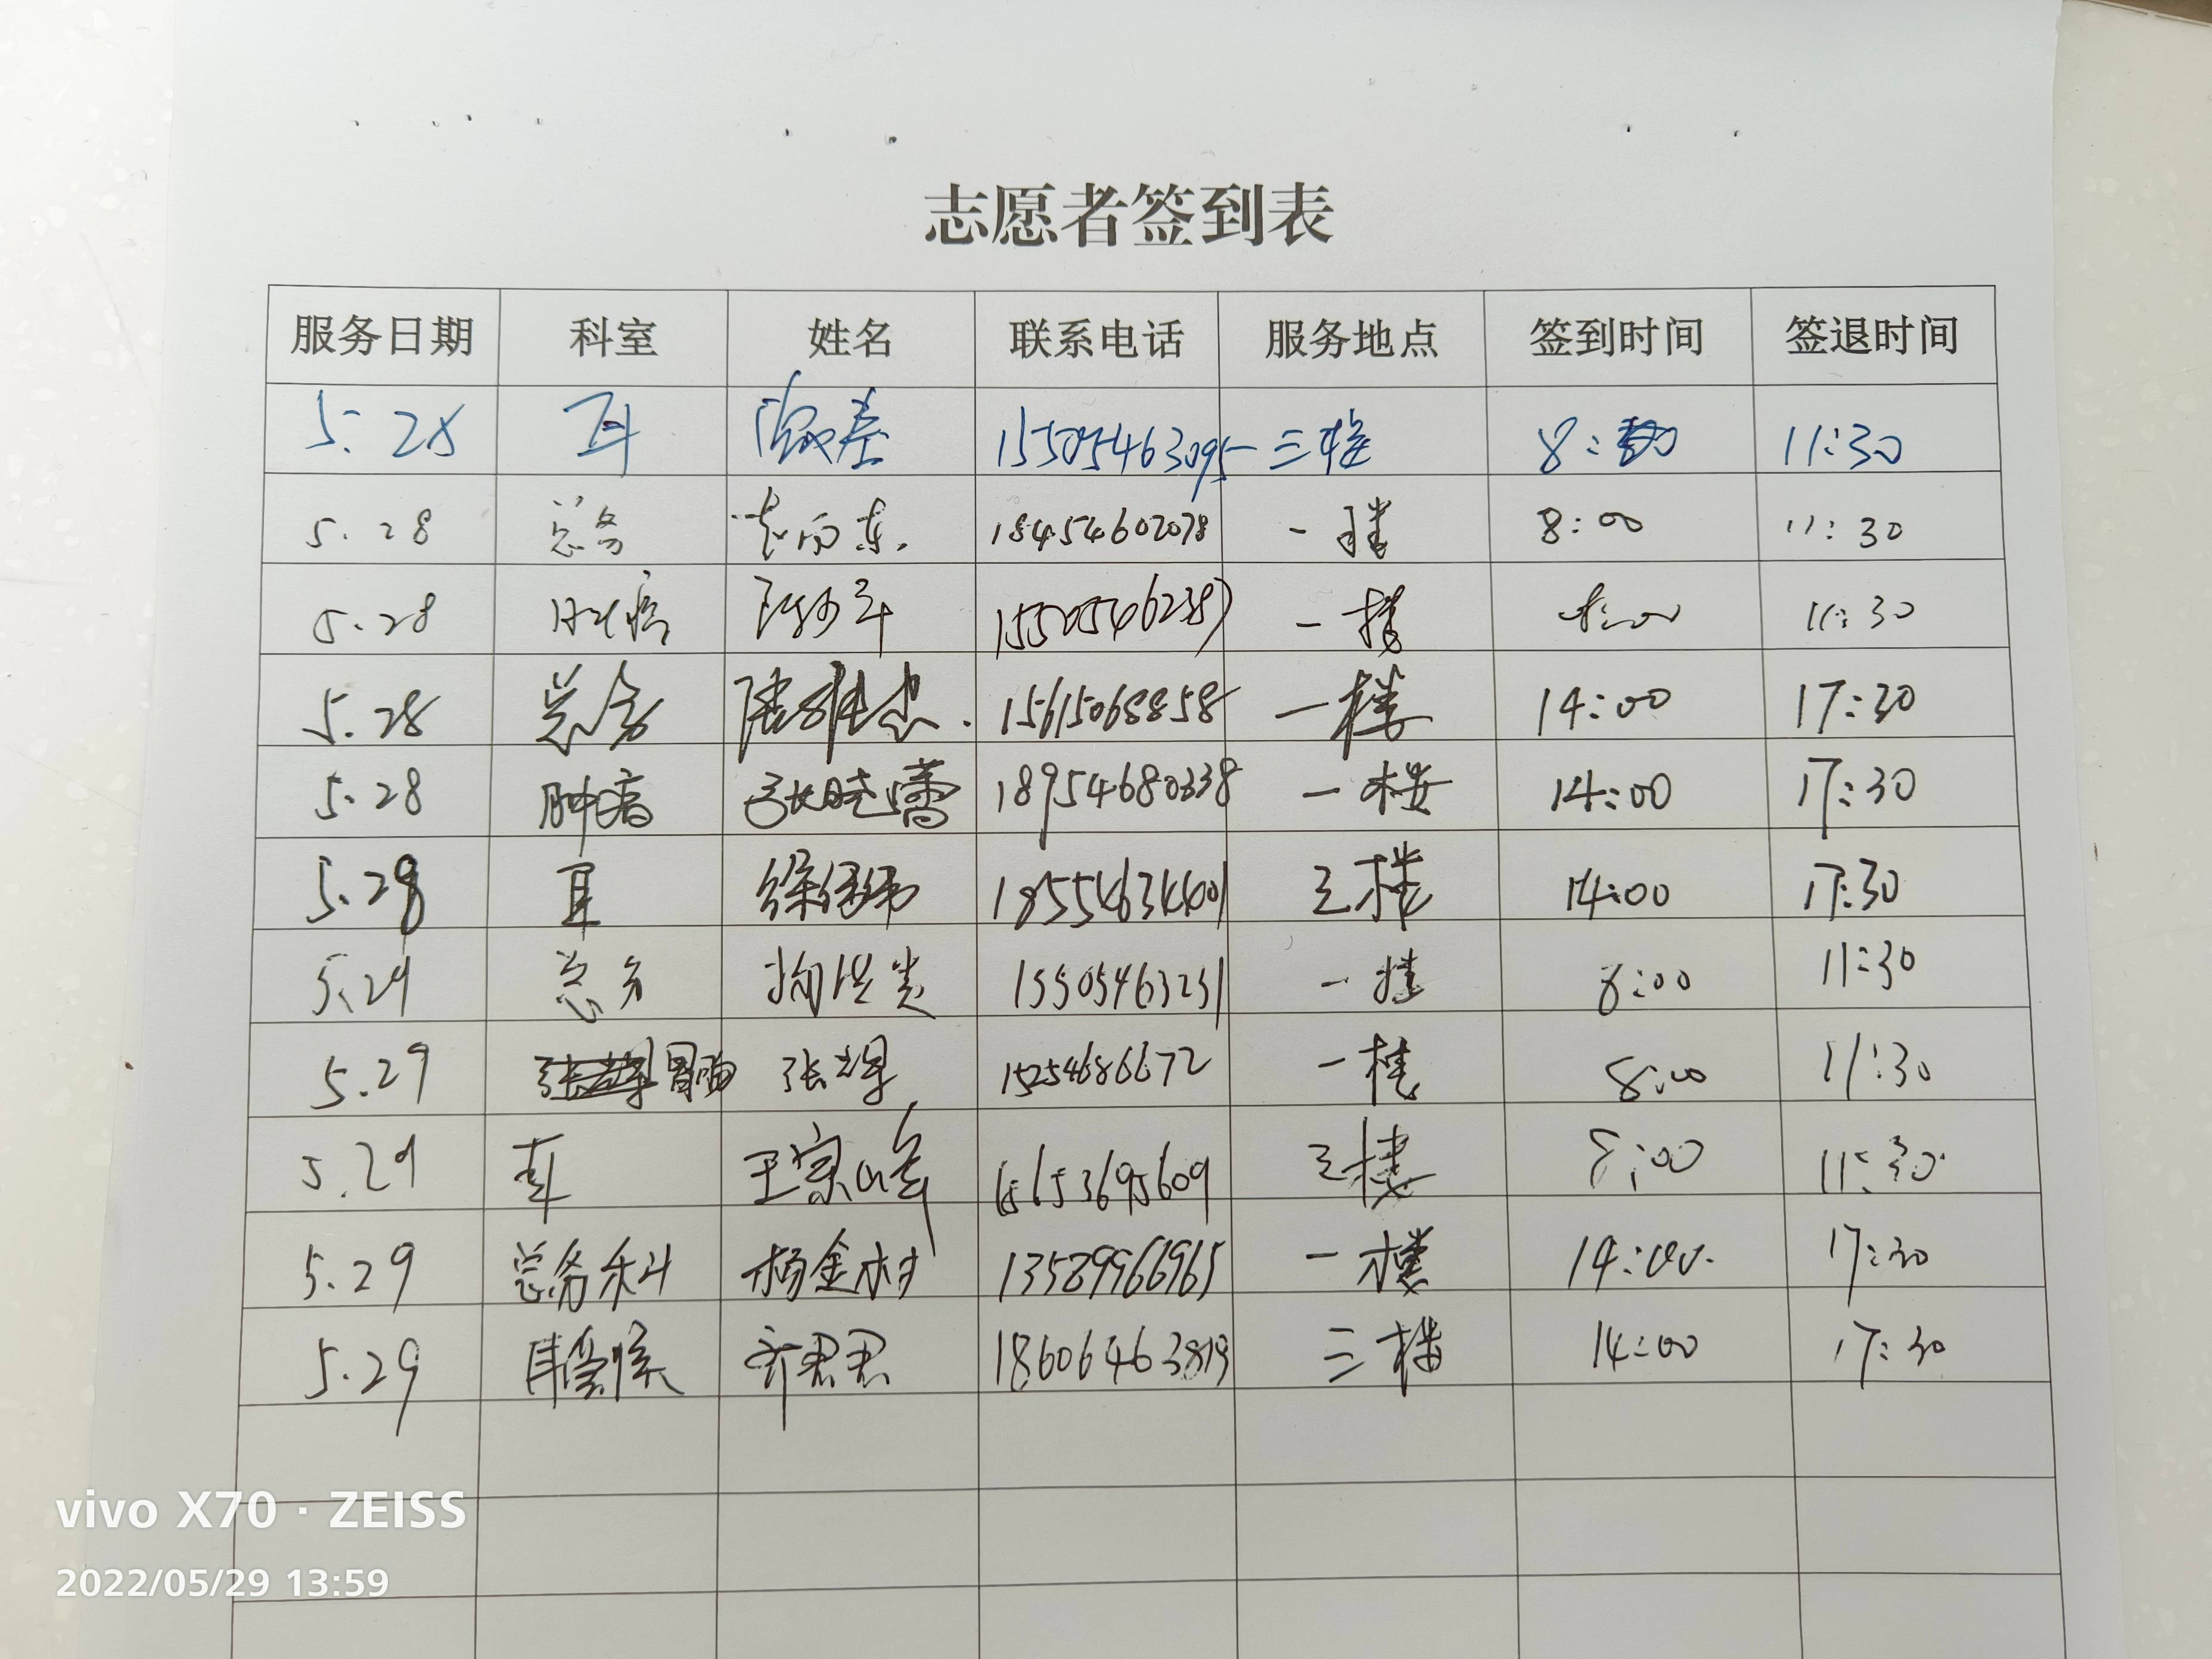 志愿者签到表
服务日期 科室 姓名 联系电话 服务地点 签到时间 签退时间
5.28 耳 15505463095 三楼 8: 11:30
5.28 总务 18454602078 一楼 8:00 11:30
5.28 一楼 11:30
5.28 总务 15615068858 一楼 14:00 17:30
5.28 肿瘤 张晓蕾 18954680338 一楼 14:00 17:30
5.28 耳 徐 18554634401 三楼 14:00 17:30
5.29 总务 15505463231 一楼 8:00 11:30
5.29 胃肠 张 15254686672 一楼 8:00 11:30
5.29 耳 王宗峰 15653695609 三楼 8:00 11:30
5.29 总务科 杨金村 13589966965 一楼 14:00 17:30
5.29 耳鼻喉 齐君君 18606463819 三楼 14:00 17:30
vivo X70 · ZEISS
2022/05/29 13:59